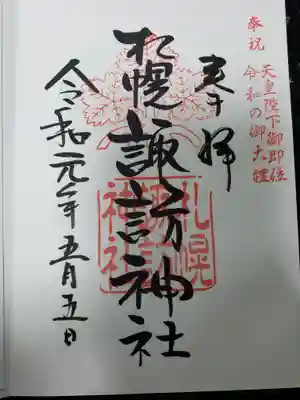 奉祝 天皇陛下御即位
令和の御大礼
奉拝
札幌諏訪神社
札幌
諏訪
神社
令和元年五月五日